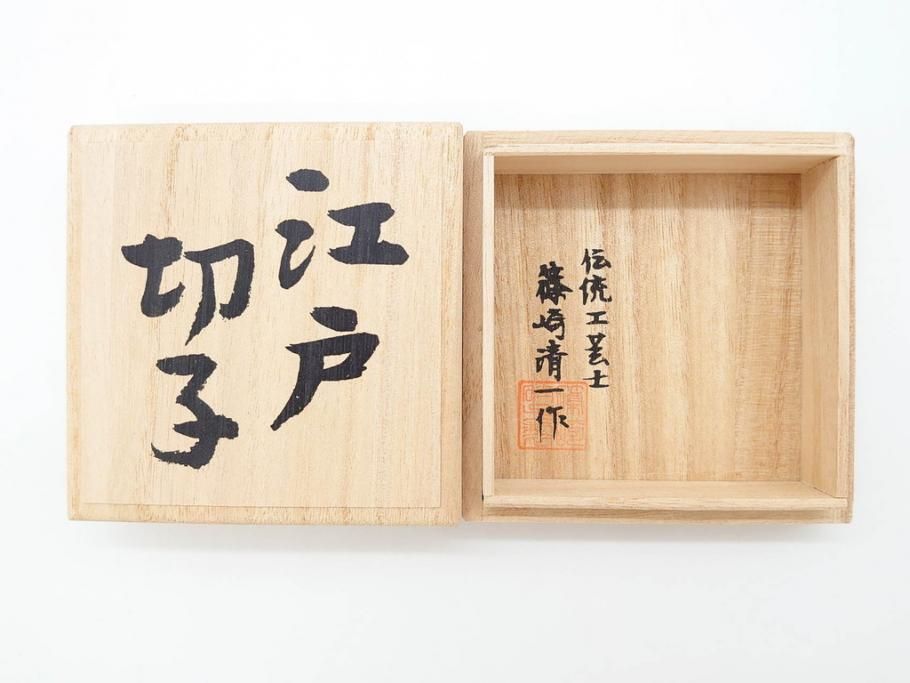 江戸
切子
伝統工芸士
篠崎清一作